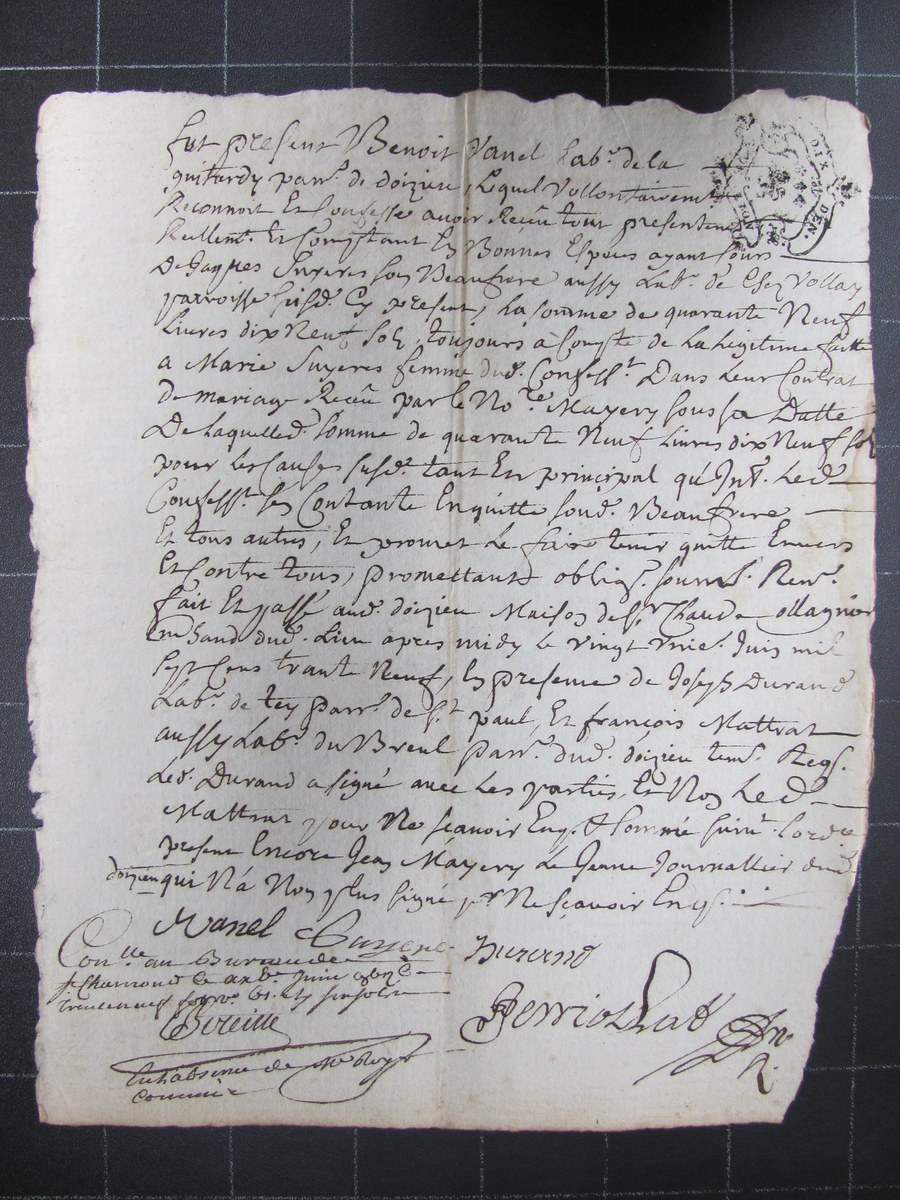 DIX DEN.
fut present Benoit Vanel Labr. de la
quitardy parr. de doizieu, Lequel Vollontairement
Reconnoit Et Confesse avoir Receu tout presentement
Reellemt. Et Comptant En Bonnes Espèces ayant Cours
De Jaques Suyeres son Beaufrere aussy Labr. de
parroisse susd. Cy present, La somme de quarante Neuf
Livres dix Neuf sols, toujours à Compte de La Legitime faitte
a Marie Suyeres femme dud. Confesst. Dans Leur Contrat
de mariage Receu par le Nore. Mayery sous sa Datte
De Laquelled. somme de quarante Neuf Livres dix Neuf sols
pour les Causes susd. tant En principal qu'Int. Led.
Confesst. se Contante En quitte sond. Beaufrere
Et tous autres, Et promet Le faire tenir quitte Envers
Et Contre tous, promettant obligt. soumis. Rent.
fait Et passé aud. doizieu Maison de sr. Claude ollagnier
dud. Lieu apres midy le vingt unie. Juin mil
sept Cens trante Neuf, En presence de Joseph Durand
Labr. de parr. de St paul, Et françois Mattrat
aussy Labr. du Breul parr. dud. doizieu tem. Reqs.
Led. Durand a signé avec Les parties, Et Non Led.
Mattrat pour Ne sçavoir Enq. Et sommé suivt. Lordce
present Encore Jean Mayery Le Jeune Journallier dud.
doizieu qui N'a Non plus signé pr. Ne sçavoir Enqs.
Vanel
Durand
Conlle au Bureau de
St Chamond Ce Juin
En l'absence de
Commis